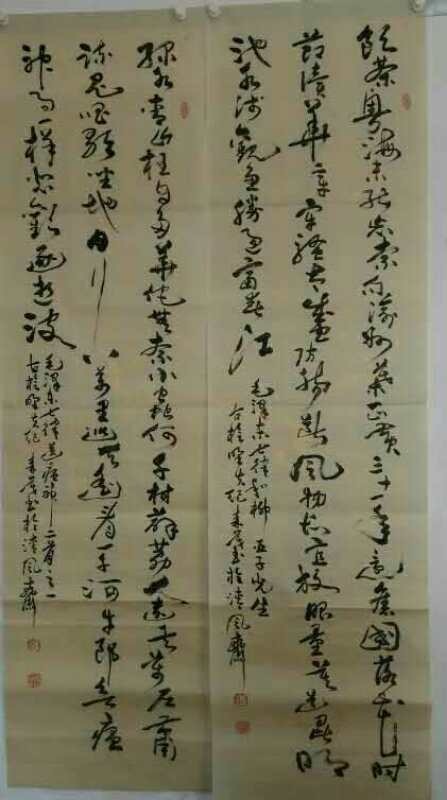 飲茶粵海未能忘索句渝州葉正黃三十一年還舊國落花時
節讀華章牢騷太盛防腸斷風物長宜放眼量莫道昆明
池水淺觀魚勝過富春江
毛澤東七律和柳亞子先生
書於清風齋
綠水青山枉自多華佗無奈小蟲何千村薜荔人遺矢萬戶蕭
疏鬼唱歌坐地日行八萬里巡天遙看一千河牛郎欲問瘟
神事一樣悲歡逐逝波
毛澤東七律送瘟神二首之一
書於清風齋